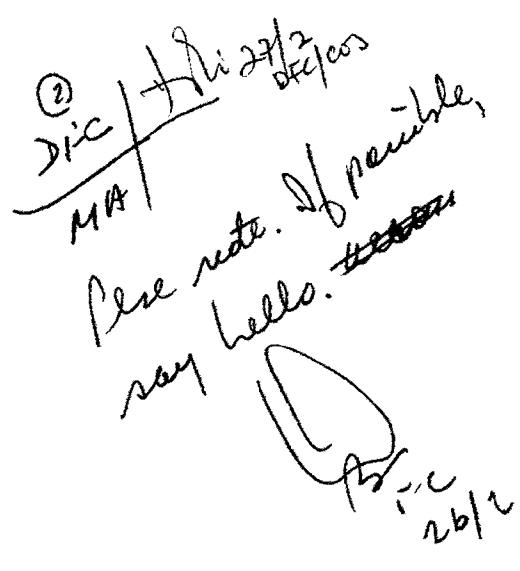 ②
Di-C
MA
27/2
DFC/COS
Plse note. If possible,
say hello.
i-C
26/2